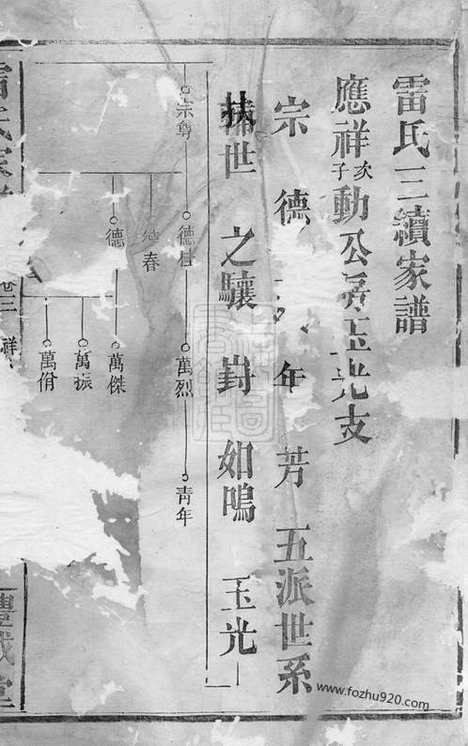 雷氏三續家譜
應祥次子動公房玉光支
宗 德 年 芳 五派世系
扶世 之驤 尌 如鳴 玉光
宗尊 德 萬烈 青年
春
德 萬傑
萬振
萬佾
氏家
卷三 祥
豐城堂
www.fozhu920.com